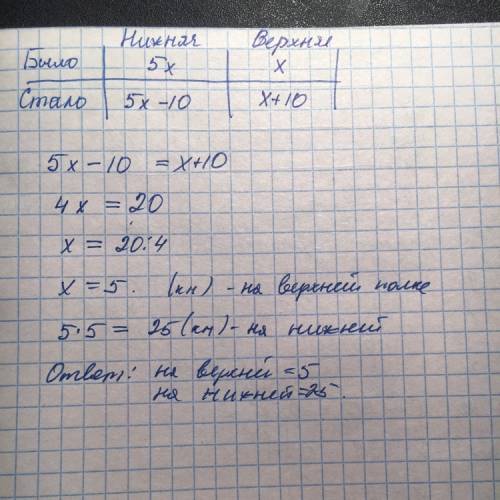 Нижняя Верхняя
Было 5x x
Стало 5x-10 x+10
5x-10 = x+10
4x = 20
x = 20:4
x = 5. (кн) - на верхней полке
5·5 = 25 (кн) - на нижней
Ответ: на верхней = 5
на нижней = 25.